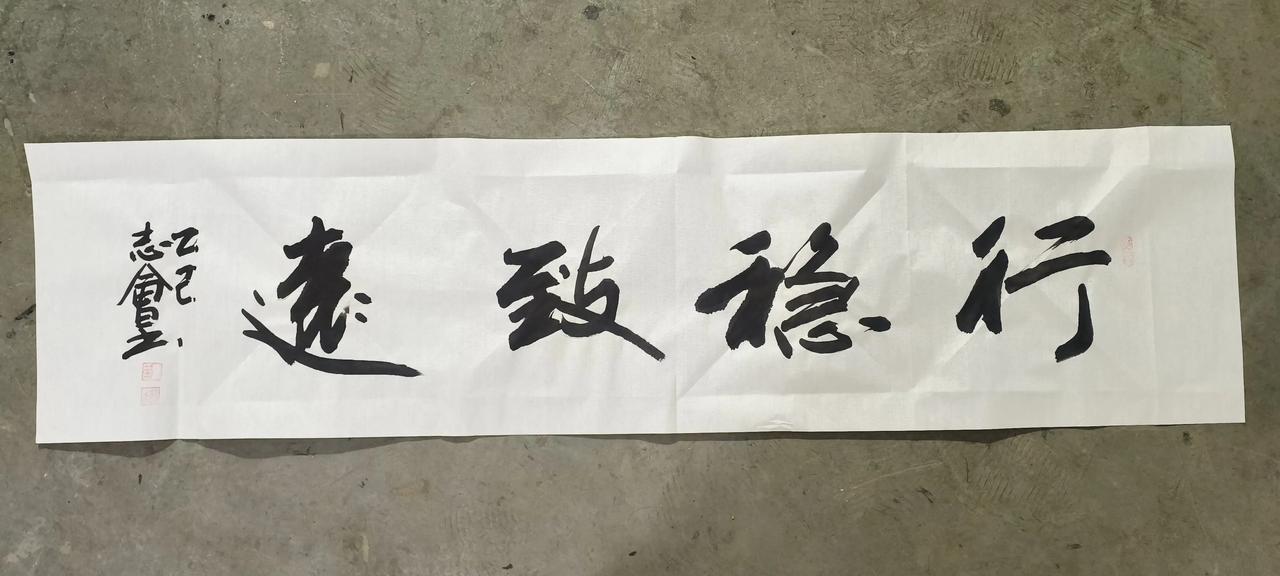 行稳致遠
乙巳
志會